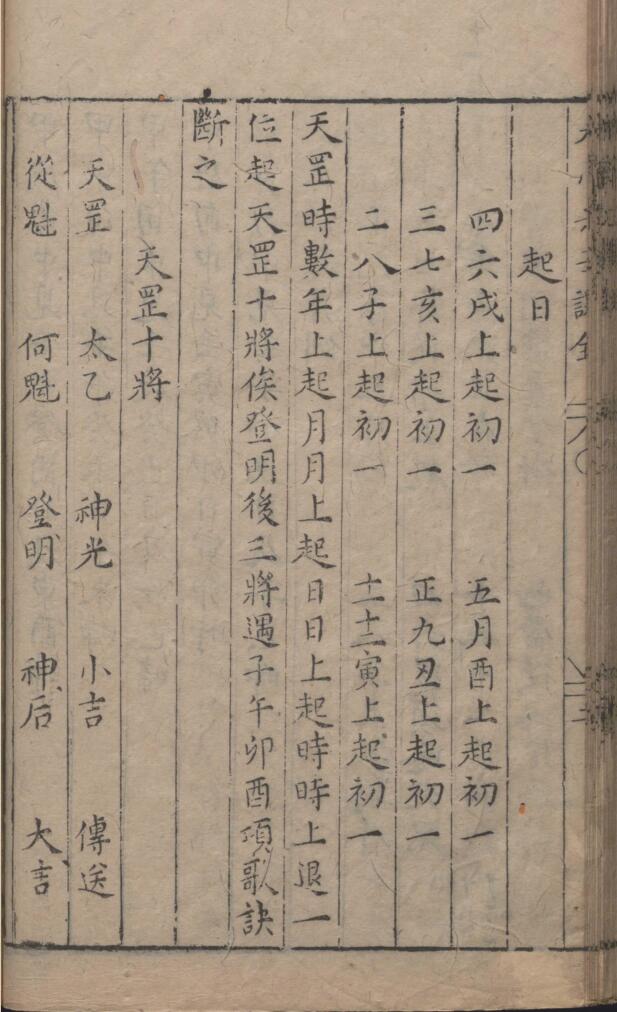 起日
四六戌上起初一　五月酉上起初一
三七亥上起初一　正九丑上起初一
二八子上起初一　十十一十二寅上起初一
天罡時數年上起月月上起日日上起時時上退一
位起天罡十將俟登明後三將遇子午卯酉項歌訣
斷之
天罡十將
天罡　太乙　神光　小吉　傳送
從魁　何魁　登明　神后　大吉